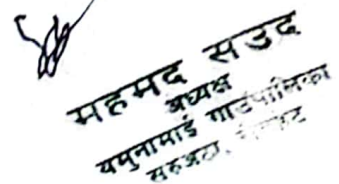 महमद सउद
अध्यक्ष
यमुनामाई गाउँपालिका